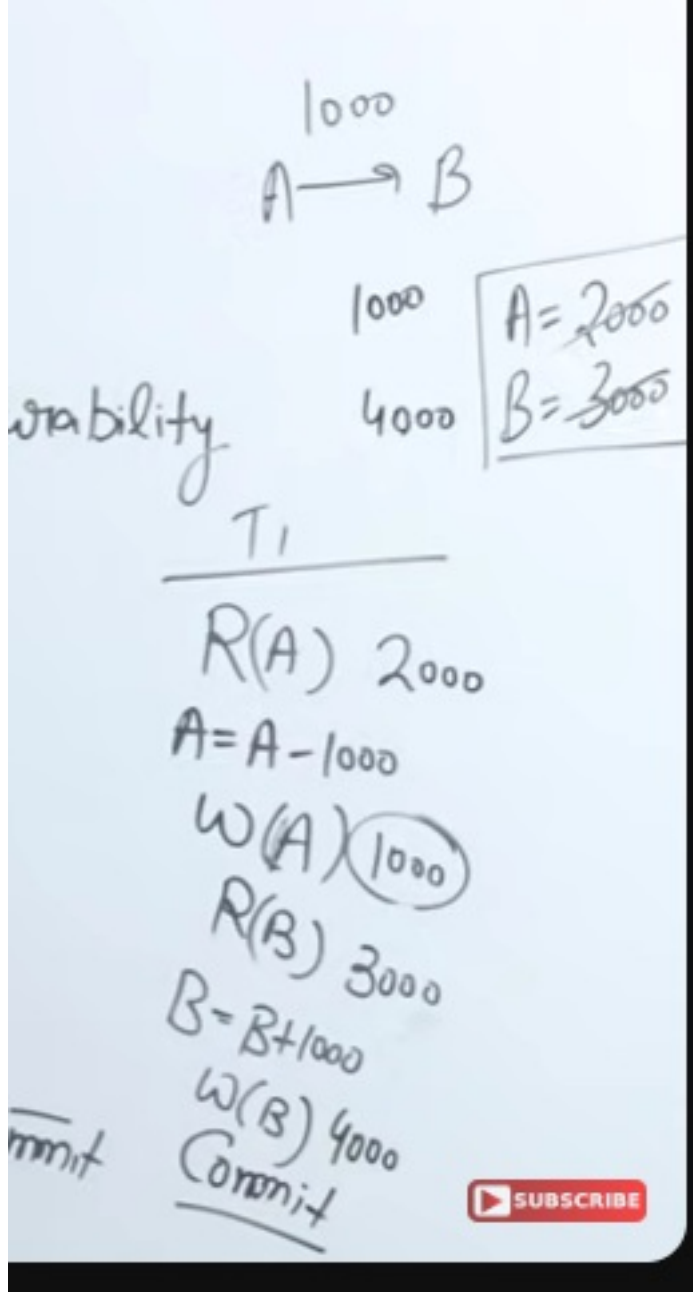 1000
A → B
1000 A = 2000
4000 B = 3000
urability
T1
R(A) 2000
A = A - 1000
W(A) 1000
R(B) 3000
B = B + 1000
W(B) 4000
mmit Commit
SUBSCRIBE